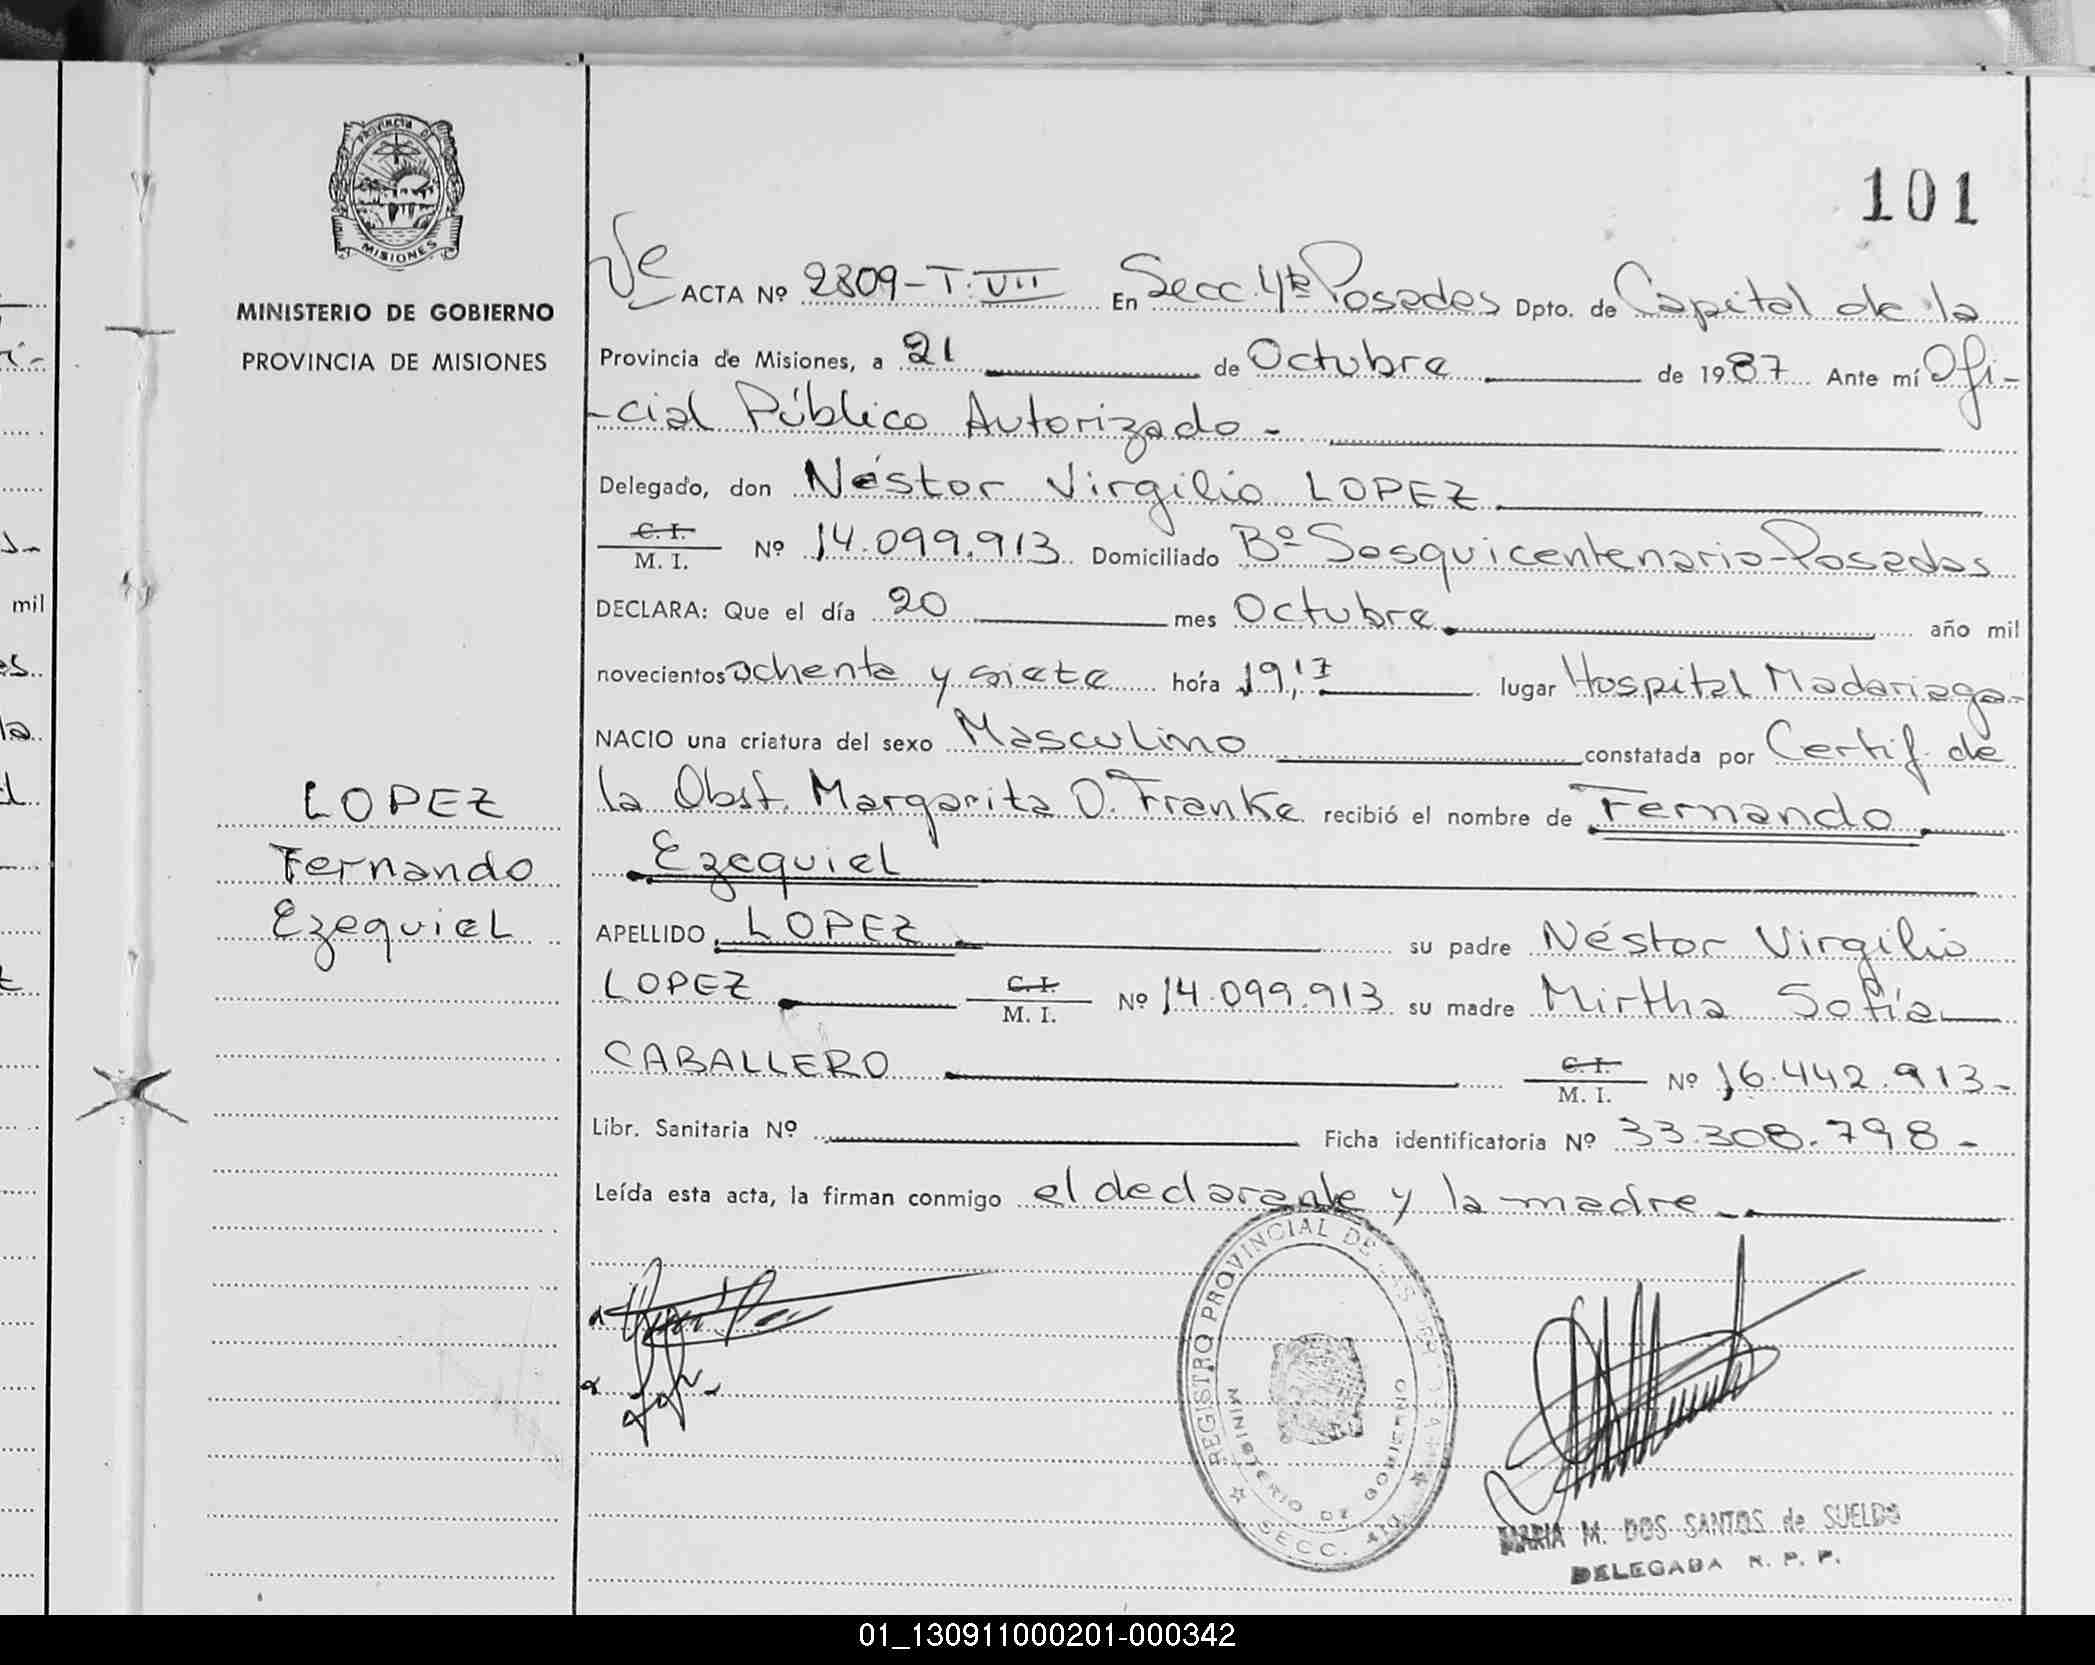 PROVINCIA DE
MISIONES
MINISTERIO DE GOBIERNO
PROVINCIA DE MISIONES
LOPEZ
Fernando
Ezequiel
101
ACTA Nº 2809-T.VII En Secc. 4ta Posadas Dpto. de Capital de la
Provincia de Misiones, a 21 de Octubre de 1987 Ante mí Ofi-
-cial Público Autorizado -
Delegado, don Néstor Virgilio LOPEZ
C. I.
M. I. Nº 14.099.913 Domiciliado Bº Sesquicentenario-Posadas
DECLARA: Que el día 20 mes Octubre año mil
novecientos ochenta y siete hora 19,17 lugar Hospital Madariaga-
NACIO una criatura del sexo Masculino constatada por Certif. de
la Obst. Margarita O. Franke recibió el nombre de Fernando
Ezequiel
APELLIDO LOPEZ su padre Néstor Virgilio
LOPEZ C. I. M. I. Nº 14.099.913 su madre Mirtha Sofía
CABALLERO C. I. M. I. Nº 16.442.913-
Libr. Sanitaria Nº Ficha identificatoria Nº 33.308.798-
Leída esta acta, la firman conmigo el declarante y la madre -
REGISTRO PROVINCIAL DE
MINISTERIO DE GOBIERNO
SECC. 4ta
MARIA M. DOS SANTOS de SUELDO
DELEGADA R. P. P.
mil
01_130911000201-000342